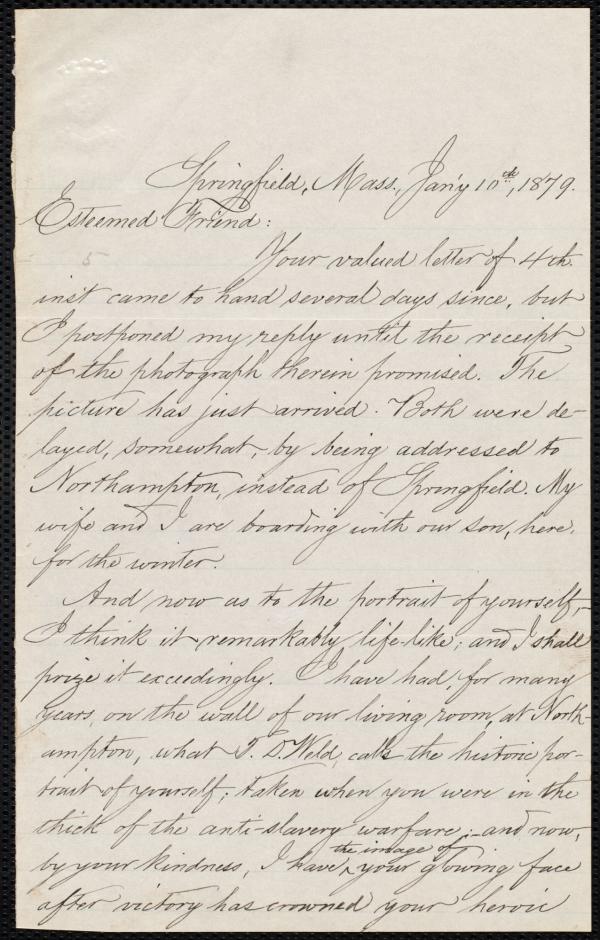 Springfield, Mass., Jan'y 10th, 1879.
Esteemed Friend:
5
Your valued letter of 4th
inst came to hand several days since, but
I postponed my reply until the receipt
of the photograph therein promised. The
picture has just arrived. Both were de-
layed, somewhat, by being addressed to
Northampton, instead of Springfield. My
wife and I are boarding with our son, here,
for the winter.
And now as to the portrait of yourself,-
I think it remarkably life-like; and I shall
prize it exceedingly. I have had, for many
years, on the wall of our living room, at North-
ampton, what T. D. Weld, calls the historic por-
trait of yourself; taken when you were in the
thick of the anti-slavery warfare;- and now,
by your kindness, I have ^ the image of your glowing face
after victory has crowned your heroic